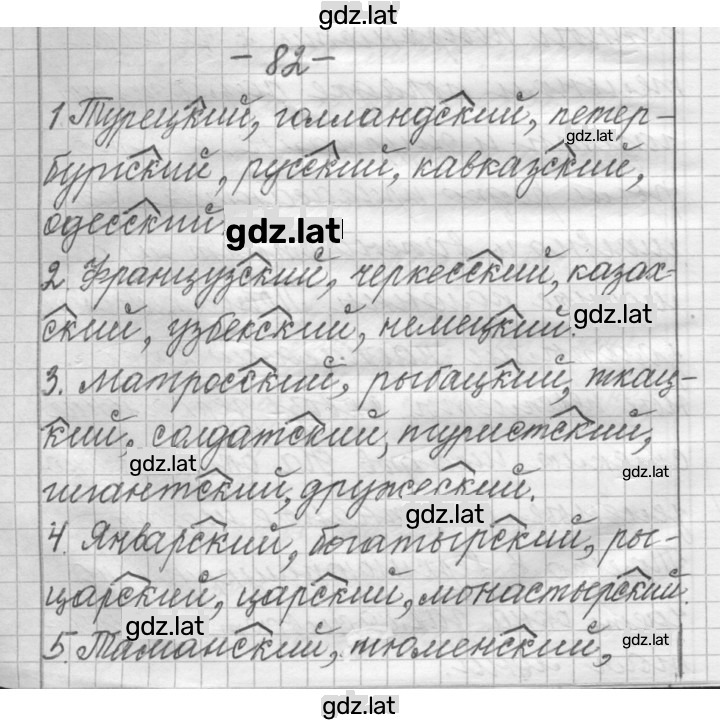 gdz.lat
- 82 -
1 Турецкий, голландский, петер-
gdz.lat
бургский, русский, кавказский,
одесский gdz.lat
2 Французский, черкесский, казах-
ский, узбекский, немецкий. gdz.lat
3. Матросский, рыбацкий, ткац-
кий, солдатский, туристский,
gdz.lat
gdz.lat
гигантский, дружеский.
gdz.lat
4. Январский, богатырский, ры-
царский, царский, монастырский.
gdz.lat
5. Таманский, тюменский,
gdz.lat
gdz.lat